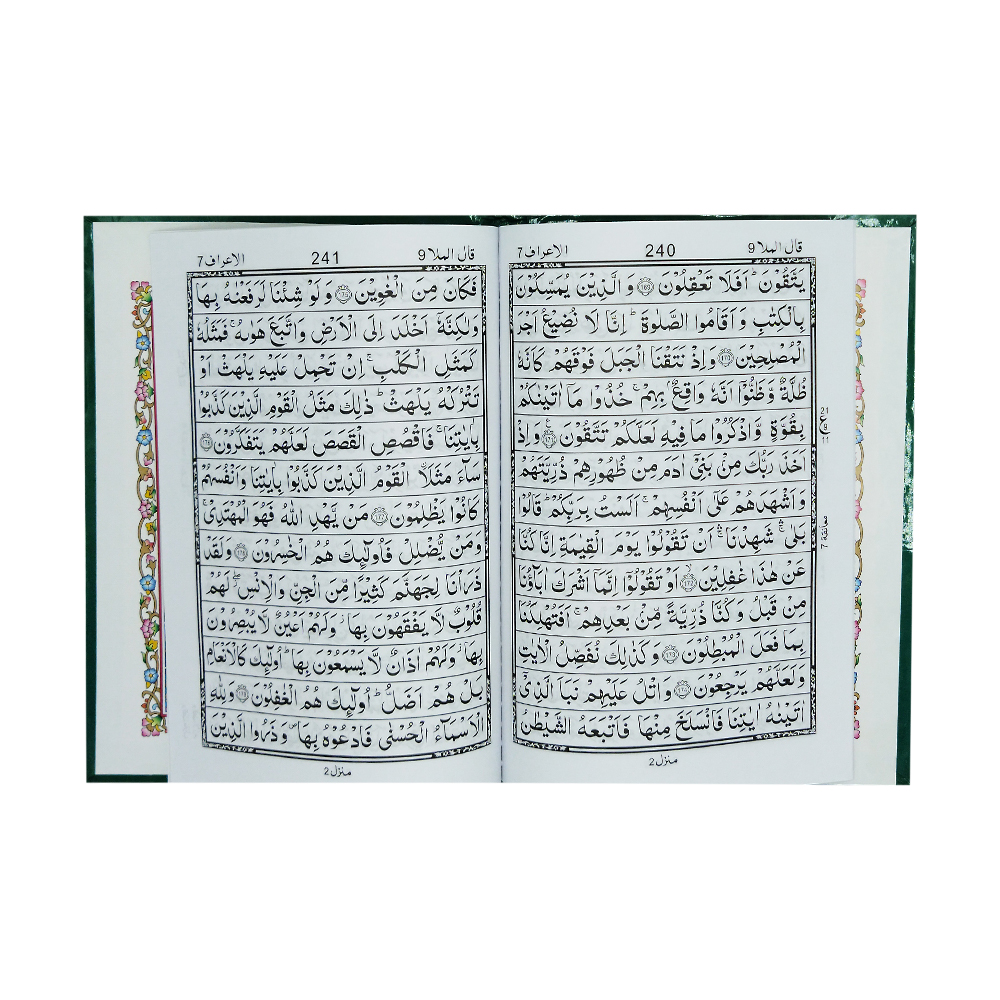 قال الملا 9 240 الاعراف 7
يَتَّقُوْنَ ؕ اَفَلَا تَعْقِلُوْنَ ﴿۱۶۹﴾ وَالَّذِيْنَ يُمَسِّكُوْنَ
بِالْكِتٰبِ وَاَقَامُوا الصَّلٰوةَ ؕ اِنَّا لَا نُضِيْعُ اَجْرَ
الْمُصْلِحِيْنَ ﴿۱۷۰﴾ وَاِذْ نَتَقْنَا الْجَبَلَ فَوْقَهُمْ كَاَنَّهٗ
ظُلَّةٌ وَّظَنُّوْۤا اَنَّهٗ وَاقِعٌۢ بِهِمْ ۚ خُذُوْا مَاۤ اٰتَيْنٰكُمْ
بِقُوَّةٍ وَّاذْكُرُوْا مَا فِيْهِ لَعَلَّكُمْ تَتَّقُوْنَ ﴿۱۷۱﴾ وَاِذْ
اَخَذَ رَبُّكَ مِنْۢ بَنِيْۤ اٰدَمَ مِنْ ظُهُوْرِهِمْ ذُرِّيَّتَهُمْ
وَاَشْهَدَهُمْ عَلٰۤى اَنْفُسِهِمْ ۚ اَلَسْتُ بِرَبِّكُمْ ؕ قَالُوْا
بَلٰى ۛۚ شَهِدْنَا ۛۚ اَنْ تَقُوْلُوْا يَوْمَ الْقِيٰمَةِ اِنَّا كُنَّا
عَنْ هٰذَا غٰفِلِيْنَ ﴿۱۷۲﴾ اَوْ تَقُوْلُوْۤا اِنَّمَاۤ اَشْرَكَ اٰبَآؤُنَا
مِنْ قَبْلُ وَكُنَّا ذُرِّيَّةً مِّنْۢ بَعْدِهِمْ ۚ اَفَتُهْلِكُنَا
بِمَا فَعَلَ الْمُبْطِلُوْنَ ﴿۱۷۳﴾ وَكَذٰلِكَ نُفَصِّلُ الْاٰيٰتِ
وَلَعَلَّهُمْ يَرْجِعُوْنَ ﴿۱۷۴﴾ وَاتْلُ عَلَيْهِمْ نَبَاَ الَّذِيْۤ
اٰتَيْنٰهُ اٰيٰتِنَا فَانْسَلَخَ مِنْهَا فَاَتْبَعَهُ الشَّيْطٰنُ
منزل 2
معانقة 7
قال الملا 9 241 الاعراف 7
فَكَانَ مِنَ الْغٰوِيْنَ ﴿۱۷۵﴾ وَلَوْ شِئْنَا لَرَفَعْنٰهُ بِهَا
وَلٰكِنَّهٗۤ اَخْلَدَ اِلَى الْاَرْضِ وَاتَّبَعَ هَوٰىهُ ۚ فَمَثَلُهٗ
كَمَثَلِ الْكَلْبِ ۚ اِنْ تَحْمِلْ عَلَيْهِ يَلْهَثْ اَوْ
تَتْرُكْهُ يَلْهَثْ ؕ ذٰلِكَ مَثَلُ الْقَوْمِ الَّذِيْنَ كَذَّبُوْا
بِاٰيٰتِنَا ۚ فَاقْصُصِ الْقَصَصَ لَعَلَّهُمْ يَتَفَكَّرُوْنَ ﴿۱۷۶﴾
سَآءَ مَثَلَا ۨ الْقَوْمُ الَّذِيْنَ كَذَّبُوْا بِاٰيٰتِنَا وَاَنْفُسَهُمْ
كَانُوْا يَظْلِمُوْنَ ﴿۱۷۷﴾ مَنْ يَّهْدِ اللّٰهُ فَهُوَ الْمُهْتَدِيْ ۚ
وَمَنْ يُّضْلِلْ فَاُولٰٓئِكَ هُمُ الْخٰسِرُوْنَ ﴿۱۷۸﴾ وَلَقَدْ
ذَرَاْنَا لِجَهَنَّمَ كَثِيْرًا مِّنَ الْجِنِّ وَالْاِنْسِ ۖ لَهُمْ
قُلُوْبٌ لَّا يَفْقَهُوْنَ بِهَا ؗ وَلَهُمْ اَعْيُنٌ لَّا يُبْصِرُوْنَ
بِهَا ؗ وَلَهُمْ اٰذَانٌ لَّا يَسْمَعُوْنَ بِهَا ؕ اُولٰٓئِكَ كَالْاَنْعَامِ
بَلْ هُمْ اَضَلُّ ؕ اُولٰٓئِكَ هُمُ الْغٰفِلُوْنَ ﴿۱۷۹﴾ وَلِلّٰهِ
الْاَسْمَآءُ الْحُسْنٰى فَادْعُوْهُ بِهَا ۪ وَذَرُوا الَّذِيْنَ
منزل 2